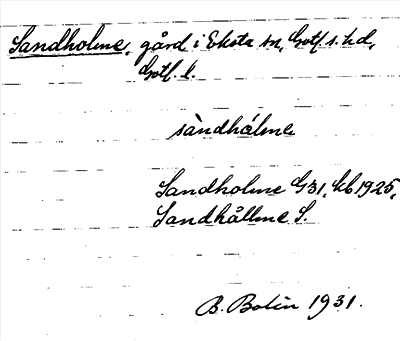 Sandholme, gård i Eksta sn, Gotl. s. hd,
Gotl. l.
sàndhálme
Sandholme G31, kb 1925,
Sandhållme S.
B. Bolin 1931.